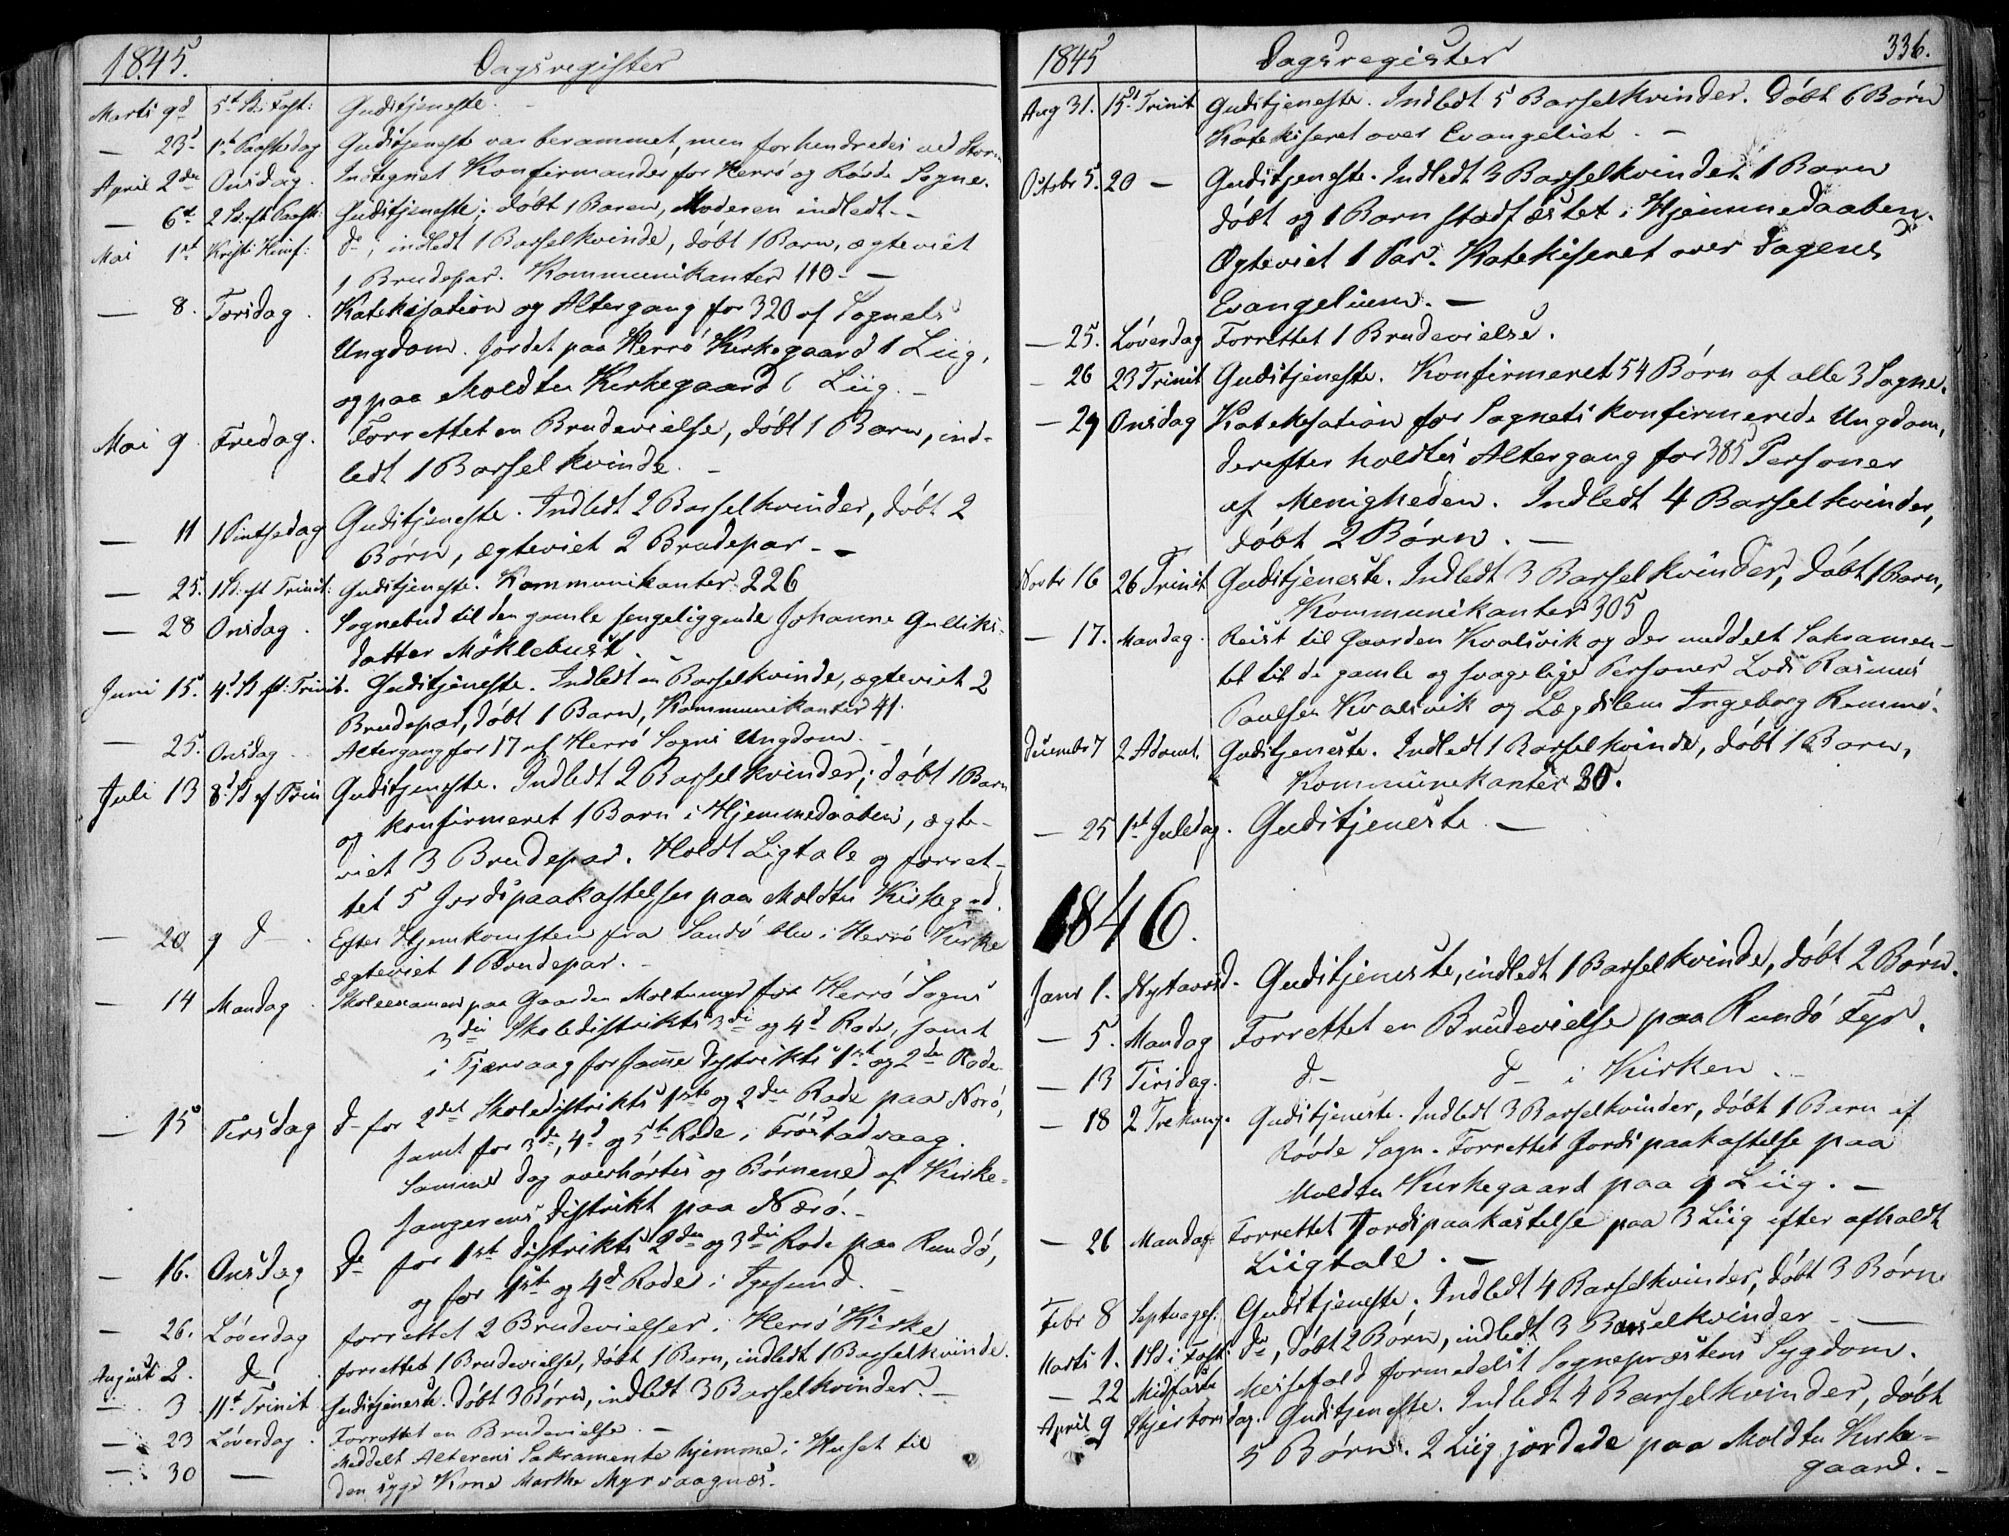 1845. Dagsregister
Marti 9d 5t S. i Fast: Gudstjeneste. -
— 23d 1st Paaskedag Gudstjeneste var berammet, men forhindredes ved Storm
April 2den Onsdag. Indtegnet Konfirmander for Herrö og Røvde Sogne.
— 6t 2 S. eft Paaske Gudstjeneste; døbt 1 Barn, Moderen indledt. -
Mai 1st Kristi Himf: do, indledt 1 Barselkvinde, døbt 1 Barn, ægteviet
1 Brudepar. Kommunikanter 110. —
— 8. Torsdag. Katekisation og Altergang for 320 af Sognets
Ungdom. Jordet paa Herrö Kirkegaard 1 Liig,
og paa Moldtu Kirkegaard 6 Liig. -
Mai 9 Fredag. Forrettet en Brudevielse, døbt 1 Barn, ind-
ledt 1 Barselkvinde. -
— 11 1 Pintsedag Gudstjeneste. Indledt 2 Barselkvinder, døbt 2
Børn, ægteviet 2 Brudepar. -
— 25. 1 S: eft Trinit: Gudstjeneste. Kommunikanter 226
— 28 Onsdag. Sognebud til den gamle sengeliggende Johanne Gulliks-
datter Möklebust.
Juni 15. 4d S eft: Trinit. Gudstjeneste. Indledt en Barselkvinde, ægteviet 2
Brudepar, døbt 1 Barn, Kommunikanter 41.
— 25. Onsdag Altergang for 17 af Herrö Sogns Ungdom. -
Juli 13 8d S ef Trin Gudstjeneste. Indledt 2 Barselkvinder; døbt 1 Barn
og konfirmeret 1 Barn i Hjemmedaaben, ægte-
viet 3 Brudepar. Holdt Ligtale og forret-
tet 5 Jordspaakastelser paa Moldtu Kirkegrd.
— 20 9 d — . Efter Hjemkomsten fra Sandö blev i Herrö Kirke
ægteviet 1 Brudepar. -
— 14 Mandag. Skoleexamen paa Gaarden Moltumyr for Herrö Sogns
3die Skoledistrikts 3die og 4d Rode, samt
i Tjærvaag for samme Distrikts 1st og 2den Rode
— 15 Tirsdag do for 2det Skoledistrikts 1ste og 2den Rode paa Nærö,
samt for 3die, 4d og 5te Rode i Fröstadvaag.
Samme Dag overhørtes og Børnene af Kirke-
sangerens Distrikt paa Nærö. -
— 16. Onsdag do for 1st Distrikts 2den og 3die Rode paa Rundö,
og for 1ste og 4d Rode i Igesund. -
— 26. Løverdag forrettet 2 Brudevielser i Herrö Kirke
August 2. d — forrettet 1 Brudevielse, døbt 1 Barn, indledt 1 Barselkvinde.
— 3 11t Trinit Gudstjeneste. Døbt 3 Børn, indledt 3 Barselkvinder. -
— 23 Løverdag. Forrettet en Brudevielse. -
— 30 — Meddelt Alterens Sakramente hjemme i Huset til
den syge Kone Marthe Myrvaagnæs.
1845 Dagsregister 336.
Aug 31. 15d Trinit Gudstjeneste. Indledt 5 Barselkvinder. Døbt 6 Børn
Katekiseret over Evangeliet. —
Octobr 5. 20 — Gudstjeneste. Indledt 3 Barselkvinder. 1 Barn
døbt og 1 Barn stadfæstet i Hjemmedaaben.
Ægteviet 1 Par. Katekiseret over Dagens
Evangelium. —
— 25. Løverdag Forrettet 1 Brudevielse.
— 26 23 Trinit Gudstjeneste. Konfirmeret 54 Børn af alle 3 Sogne.
— 29 Onsdag Katekisation for Sognets konfirmerede Ungdom,
derefter holdtes Altergang for 385 Personer
af Menigheden. Indledt 4 Barselkvinder,
døbt 2 Børn. —
Novbr 16 26 Trinit Gudstjeneste. Indledt 3 Barselkvinder, døbt 1 Barn,
Kommunikanter 305
— 17. Mandag. Reist til Gaarden Kvalsvik og der meddelt Sakramen-
tet til de gamle og svagelige Personer Lods Rasmus
Paulsen Kvalsvik og Lægdslem Ingeborg Remmö.
Decembr 7 2 Advent. Gudstjeneste. Indledt 1 Barselkvinde, døbt 1 Barn,
Kommunikanter 30.
— 25 1st Juledag. Gudstjeneste. —
1846.
Janr 1. Nytaarsd. Gudstjeneste, indledt 1 Barselkvinde, døbt 2 Børn.
— 5. Mandag Forrettet en Brudevielse paa Rundö Fyr.
— 13 Tirsdag. d — d — i Kirken. -
— 18 2 Trekong. Gudstjeneste. Indledt 3 Barselkvinder, døbt 1 Barn af
Røvde Sogn. Forrettet Jordspaakastelse paa
Moldtu Kirkegaard paa 9 Liig. —
— 26 Mandag Forrettet Jordspaakastelse paa 3 Liig efter afholdt
Liigtale. —
Febr 8 Septuages. Gudstjeneste. Indledt 4 Barselkvinder, døbt 3 Børn
Marts 1. 1 Sd i Faste do, døbt 2 Børn, indledt 3 Barselkvinder - —
— 22 Midfaste Messefald formedelst Sognepræstens Sygdom.
April 9 Skjertorsdag. Gudstjeneste. Indledt 4 Barselkvinder, døbt
5 Børn. 2 Liig jordede paa Moldtu Kirke-
gaard. -